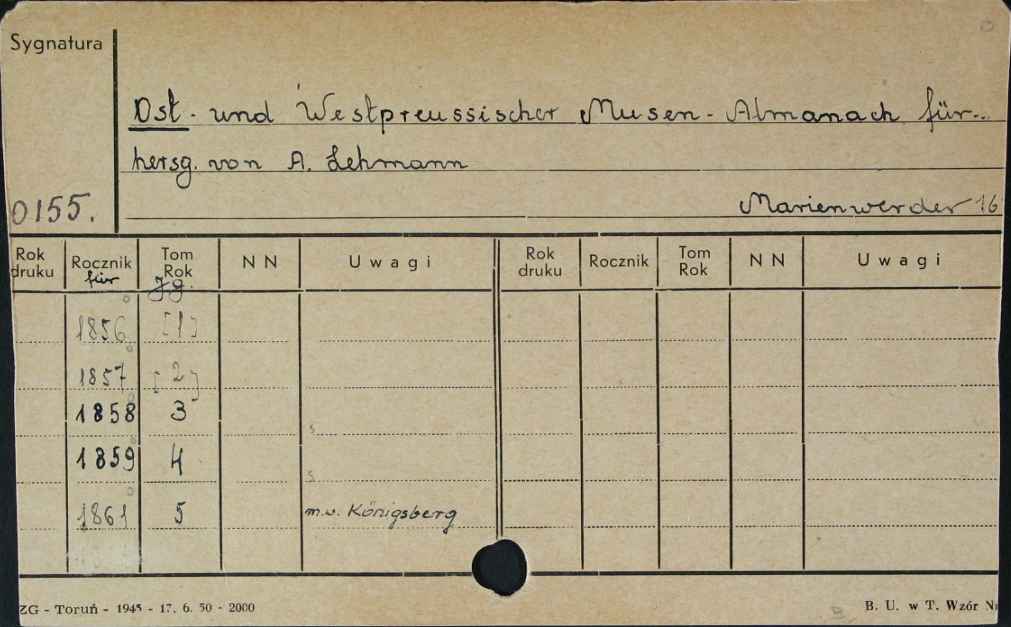 Sygnatura
Ost- und Westpreussischer Musen-Almanach für...
hersg. von A. Lehmann
0155.
Marienwerder 16
Rok druku Rocznik für Tom Rok Jg. N N Uwagi Rok druku Rocznik Tom Rok N N Uwagi
1856 [1]
1857 [2]
1858 3
s
1859 4
s
1861 5 m.w. Königsberg
ZG - Toruń - 1945 - 17. 6. 50 - 2000
B. U. w T. Wzór N